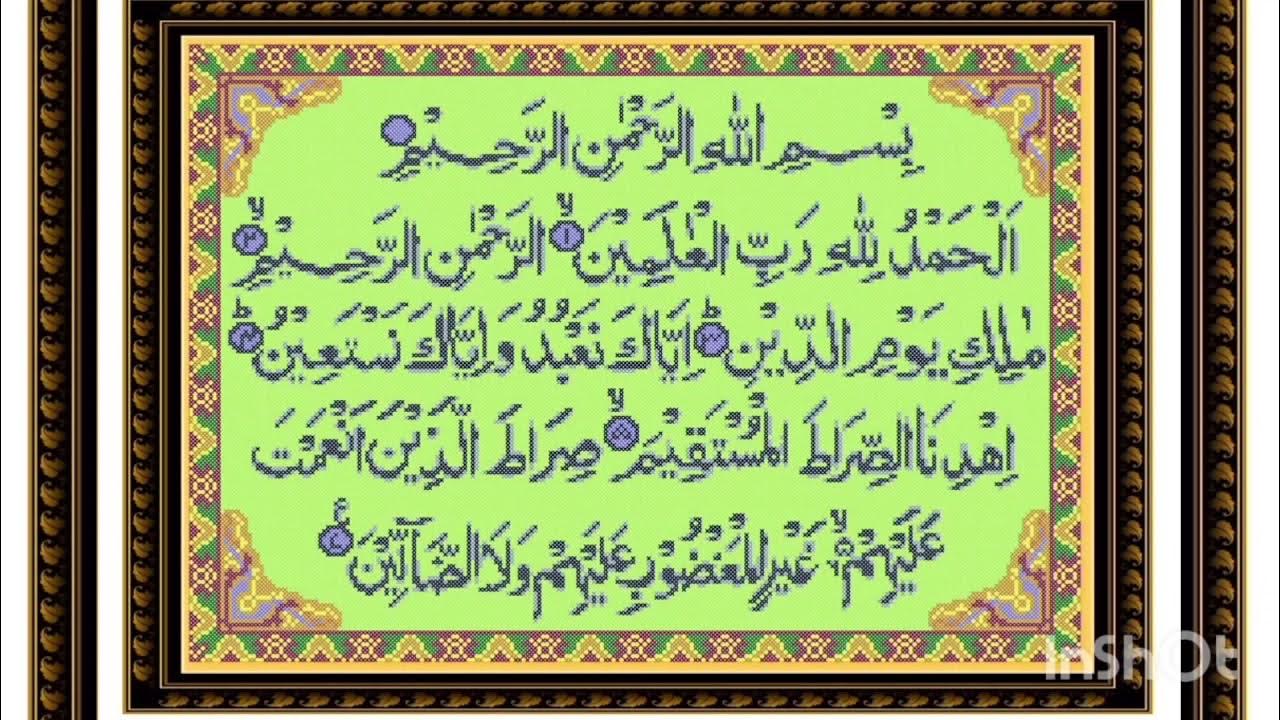 بِسْمِ اللّٰهِ الرَّحْمٰنِ الرَّحِيْمِ
اَلْحَمْدُ لِلّٰهِ رَبِّ الْعٰلَمِيْنَ ۙ۱ الرَّحْمٰنِ الرَّحِيْمِ ۙ۲
مٰلِكِ يَوْمِ الدِّيْنِ ؕ۳ اِيَّاكَ نَعْبُدُ وَاِيَّاكَ نَسْتَعِيْنُ ؕ۴
اِهْدِنَا الصِّرَاطَ الْمُسْتَقِيْمَ ۙ۵ صِرَاطَ الَّذِيْنَ اَنْعَمْتَ
عَلَيْهِمْ ۙ۶ غَيْرِ الْمَغْضُوْبِ عَلَيْهِمْ وَلَا الضَّآلِّيْنَ ۧ۷
InShOt